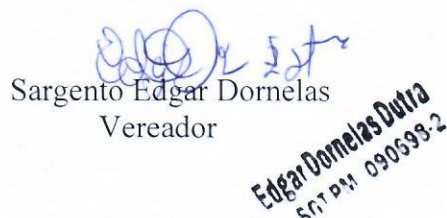 Sargento Edgar Dornelas
Vereador
Edgar Dornelas Dutra
SGT PM 090698-2